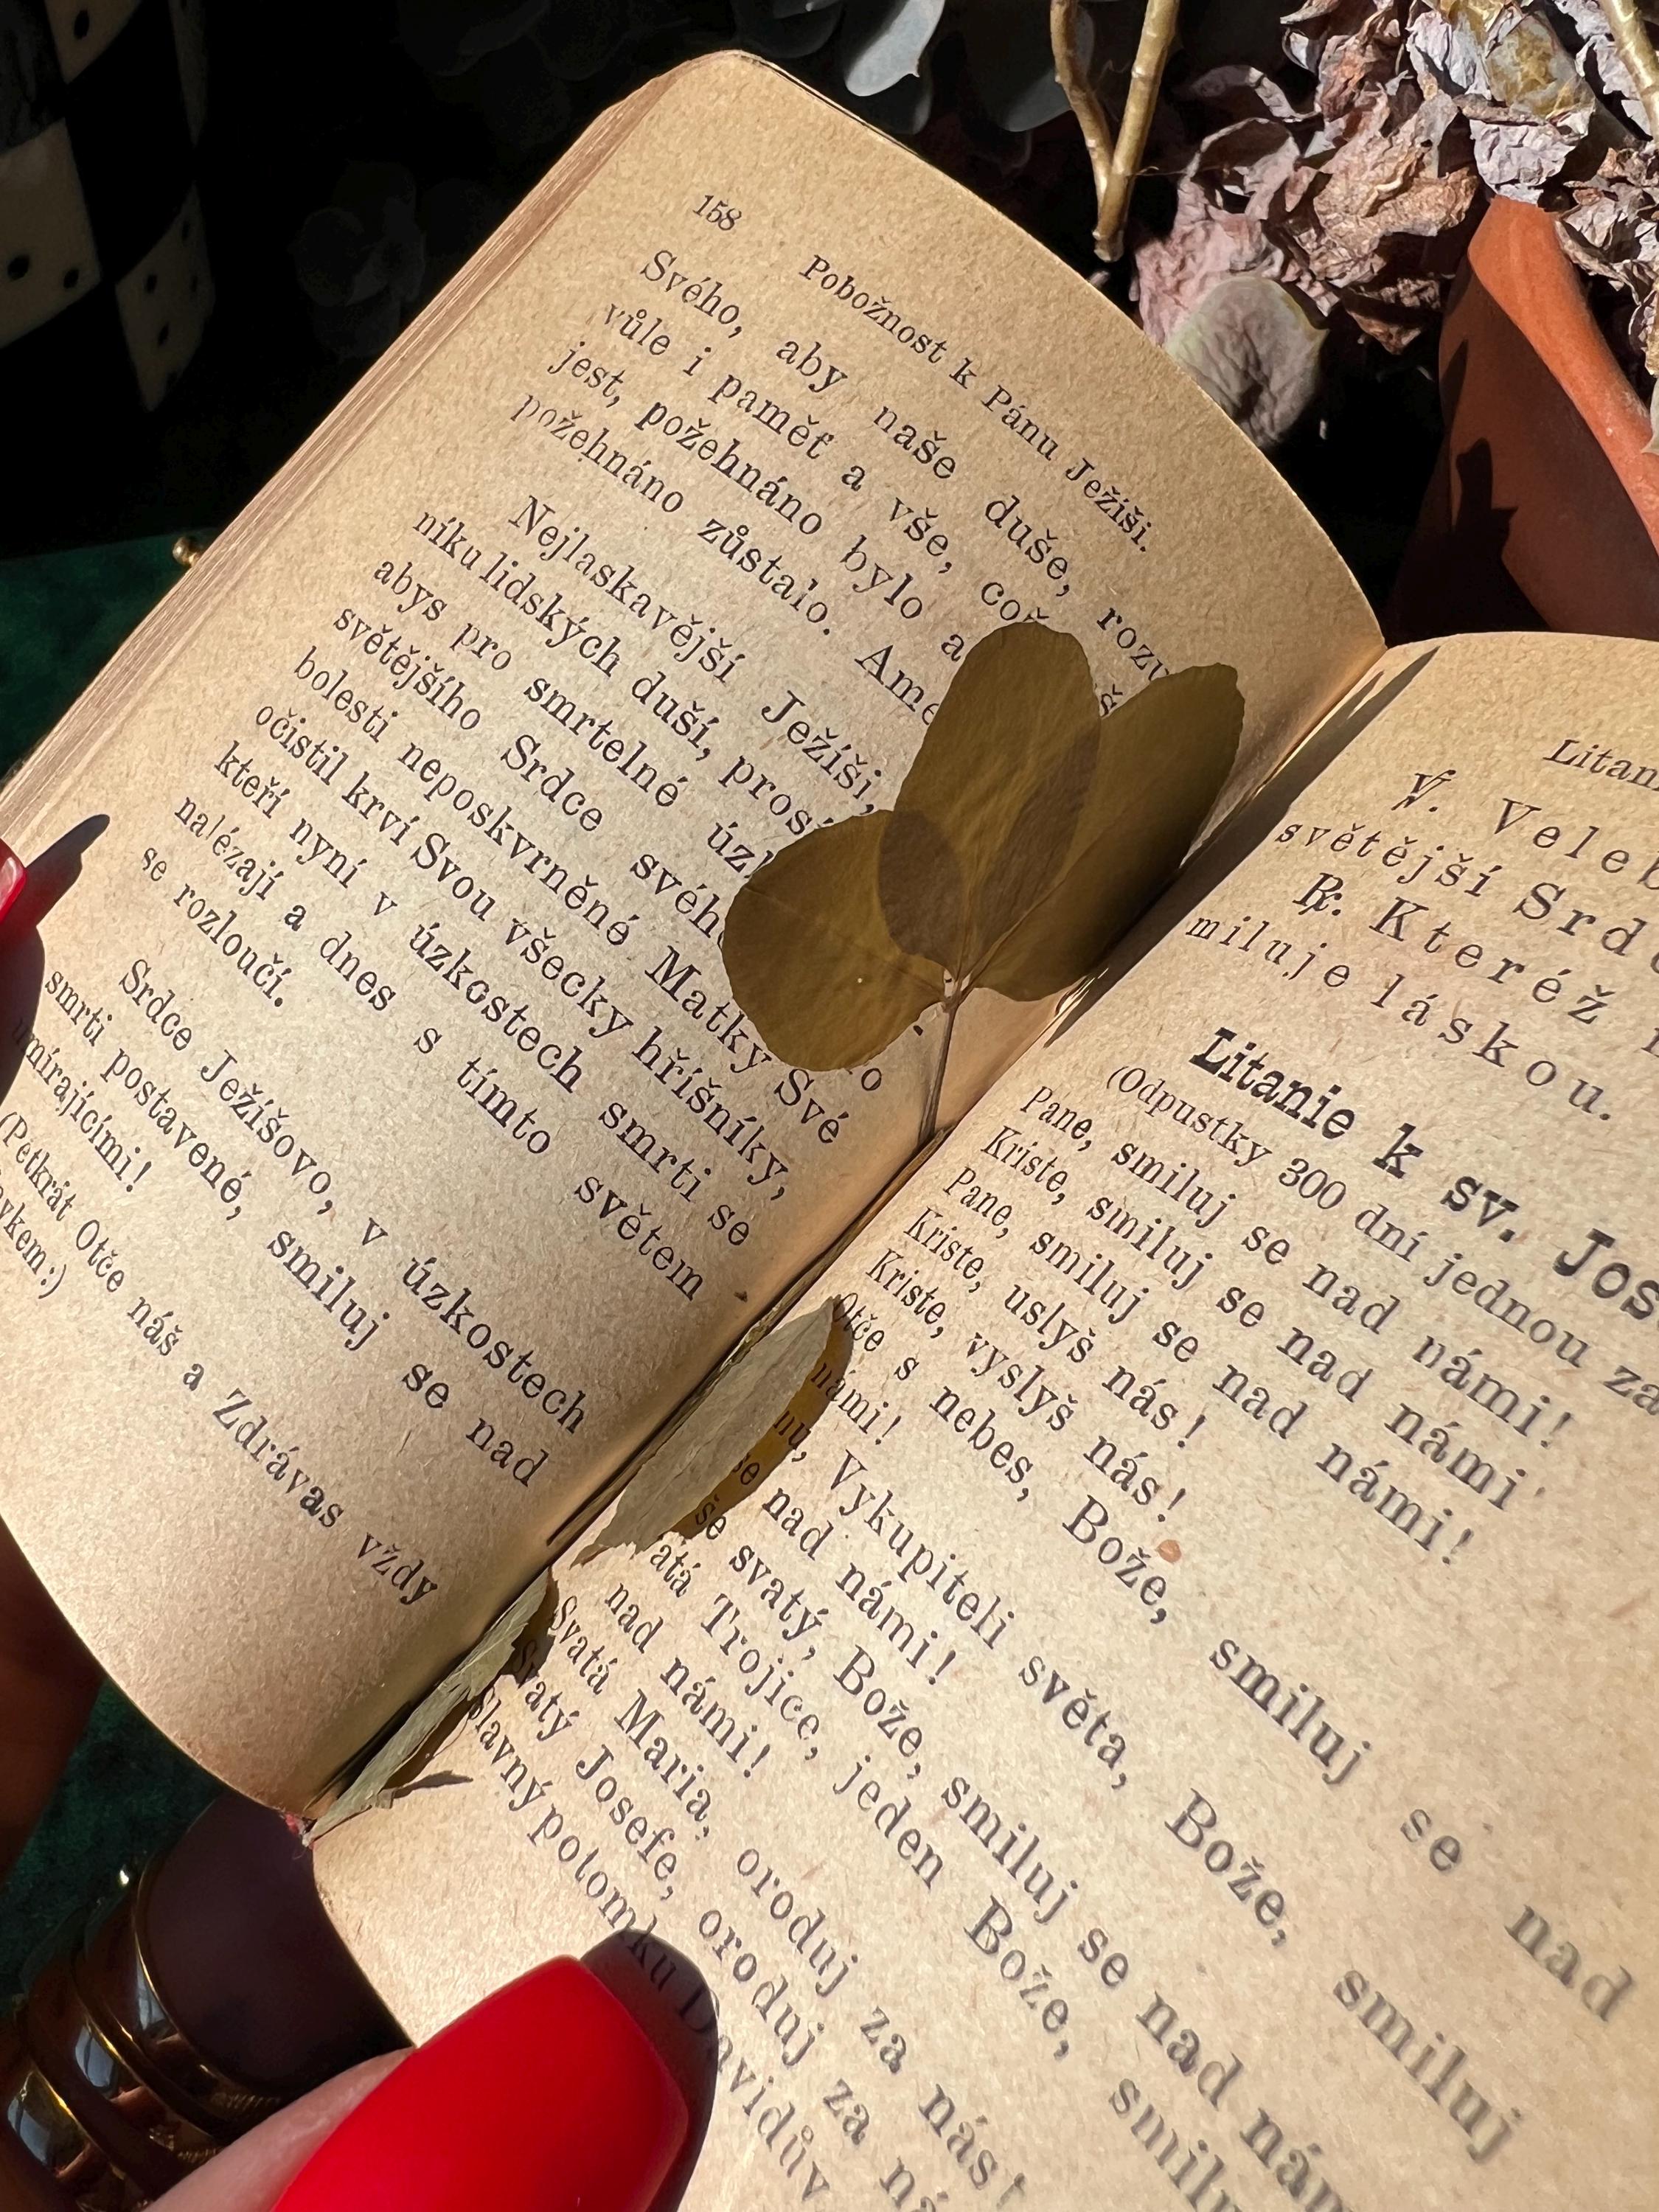 158 Pobožnost k Pánu Ježíši.
Svého, aby naše duše,
vůle i paměť a vše, což
jest, požehnáno bylo a
požehnáno zůstalo.
Nejlaskavější Ježíši,
níku lidských duší,
abys pro smrtelné
světějšího Srdce
bolesti neposkvrněné Matky Své
očistil krví Svou všecky hříšníky,
kteří nyní v úzkostech smrti se
nalézají a dnes s tímto světem
se rozloučí.
Srdce Ježíšovo, v úzkostech
smrti postavené, smiluj se nad
umírajícími!
(Petkrát Otče náš a Zdrávas vždy
V.
světější
R. Kteréž
miluje láskou.
Litanie k sv.
(Odpustky 300 dní jednou za
Pane, smiluj se nad námi!
Kriste, smiluj se nad námi
Pane, smiluj se nad námi!
Kriste, uslyš nás!
Kriste, vyslyš nás!
Otče s nebes, Bože, smiluj se nad
námi!
Vykupiteli světa, Bože, smiluj
se nad námi!
svatý, Bože, smiluj se nad
Trojice, jeden Bože,
nad námi!
Svatá Maria, oroduj za nás!
Svatý Josefe, oroduj za
Slavný potomku Davidův